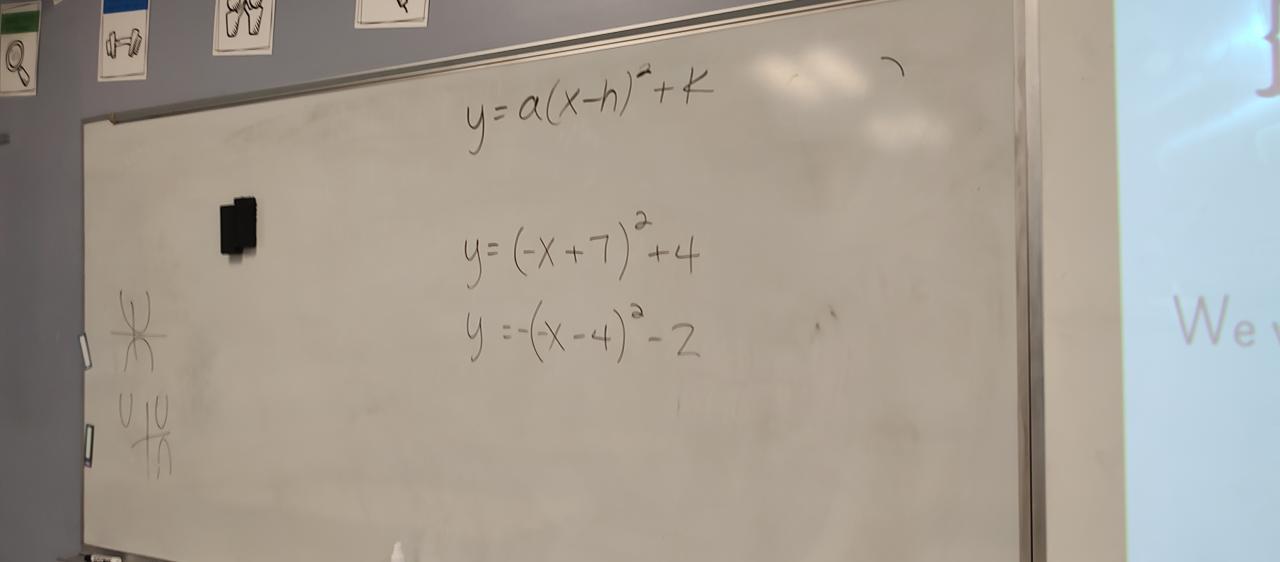 y = a(x-h)² + k
y = (-x + 7)² + 4
y = -(-x - 4)² - 2
We